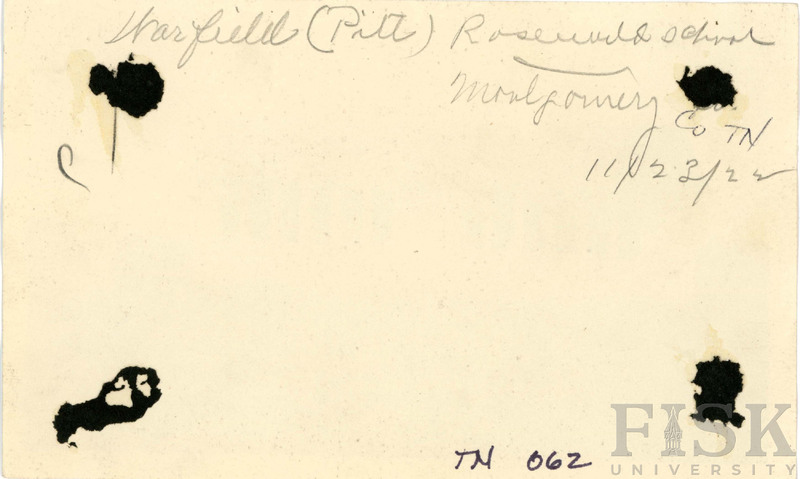 Warfield (Pitt) Rosenwald school
Montgomery
Co TN
11/23/22
TN 062
FISK
UNIVERSITY